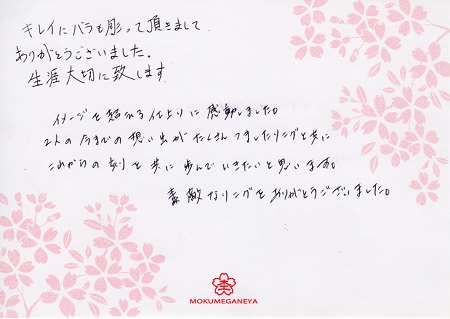 キレイにバラも彫って頂きまして
ありがとうございました。
生涯大切に致します
イメージを超える仕上りに感動しました。
2人の今までの想い出がたくさんつまったリングと共に
これからの刻を共に歩んでいきたいと思います。
素敵なリングをありがとうございました。
MOKUMEGANEYA